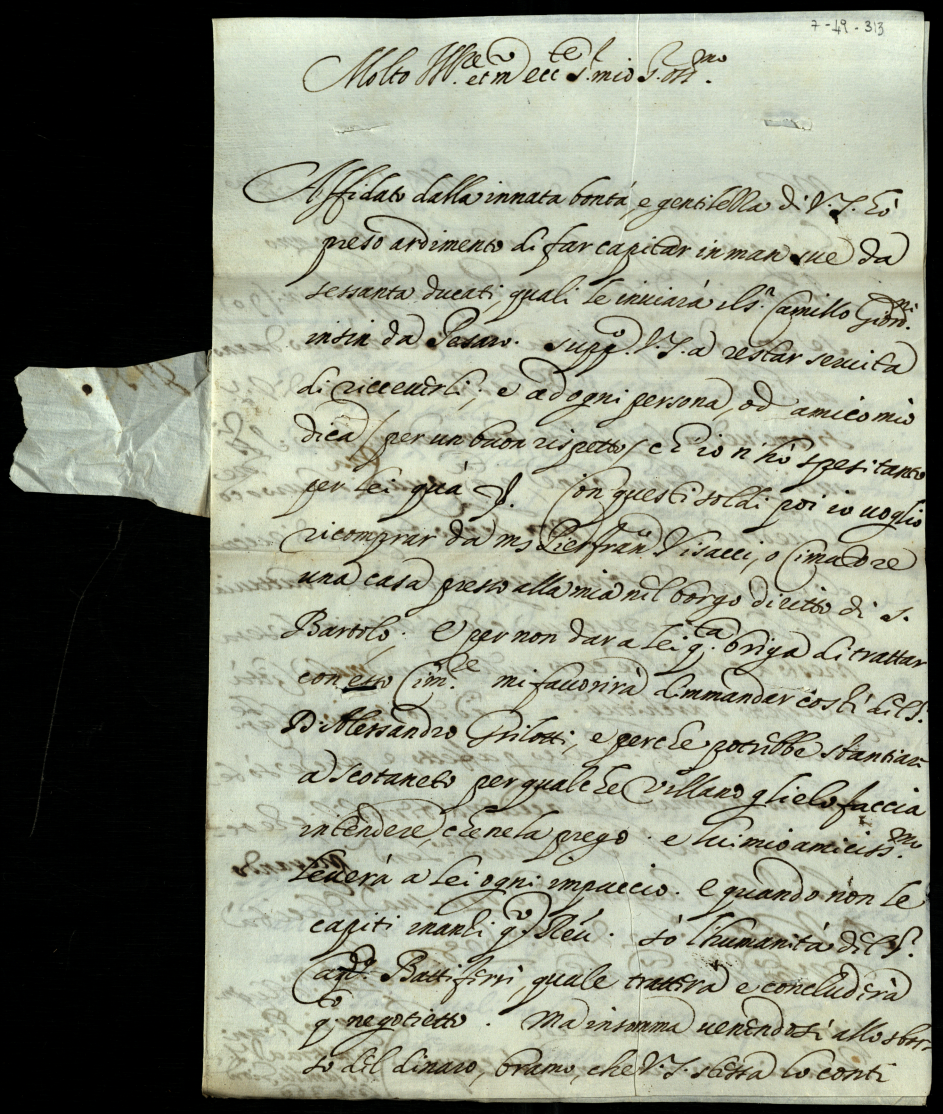 7-49-313
Molto Ill.re et m.to ecc.te S.r mio S.r oss.mo
Affidato dalla innata bontà, e gentilezza di V.S. hò
preso ardimento di far capitar in man sue da
sessanta ducati, quali le inviarà il S.r Camillo Giord.ni
insin da Pesaro. supp.co V.S. a restar servita
di riceverli, e ad ogni persona, od amico mio
dica (per un buon rispetto) ch'io n'hò spesi tanto
per lei quà
Con questi soldi poi io voglio
ricomprar da ms Pierfran.co Visacci, o Cimadore
una casa presso alla mia nel borgo diritto di S.
Bartolo. e per non dar a lei q.ta briga di trattar
con esso Cim.re mi favorirà dimmandar costì del S.r
D. Alessandro Grilotti, e perche potrebbe stantiar
a Scotaneto per qualche villano glielo faccia
intendere, che ne la prego. e lui mio amiciss.mo
leverà a lei ogni impaccio. e quando non le
capiti inanzi q.to Rev. sò l'humanità del S.r
Cap.no Battiferri, quale trattera e concluderà
q.to negotietto. Ma insomma venendosi allo sbor-
so del dinaro, bramo, che V.S. stessa lo conti